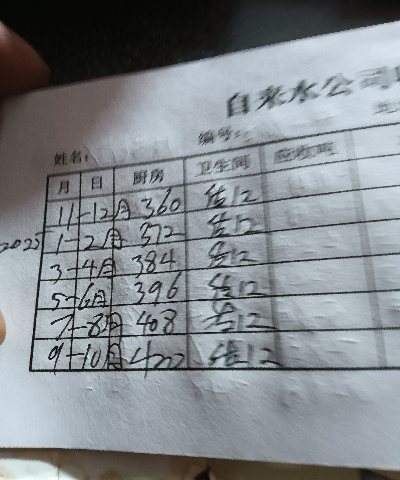 自来水公司
姓名: 编号:
月 日 厨房 卫生间 应收吨
11-12月 360 估12
2025 1-2月 372 估12
3-4月 384 估12
5-6月 396 估12
7-8月 408 估12
9-10月 420 估12